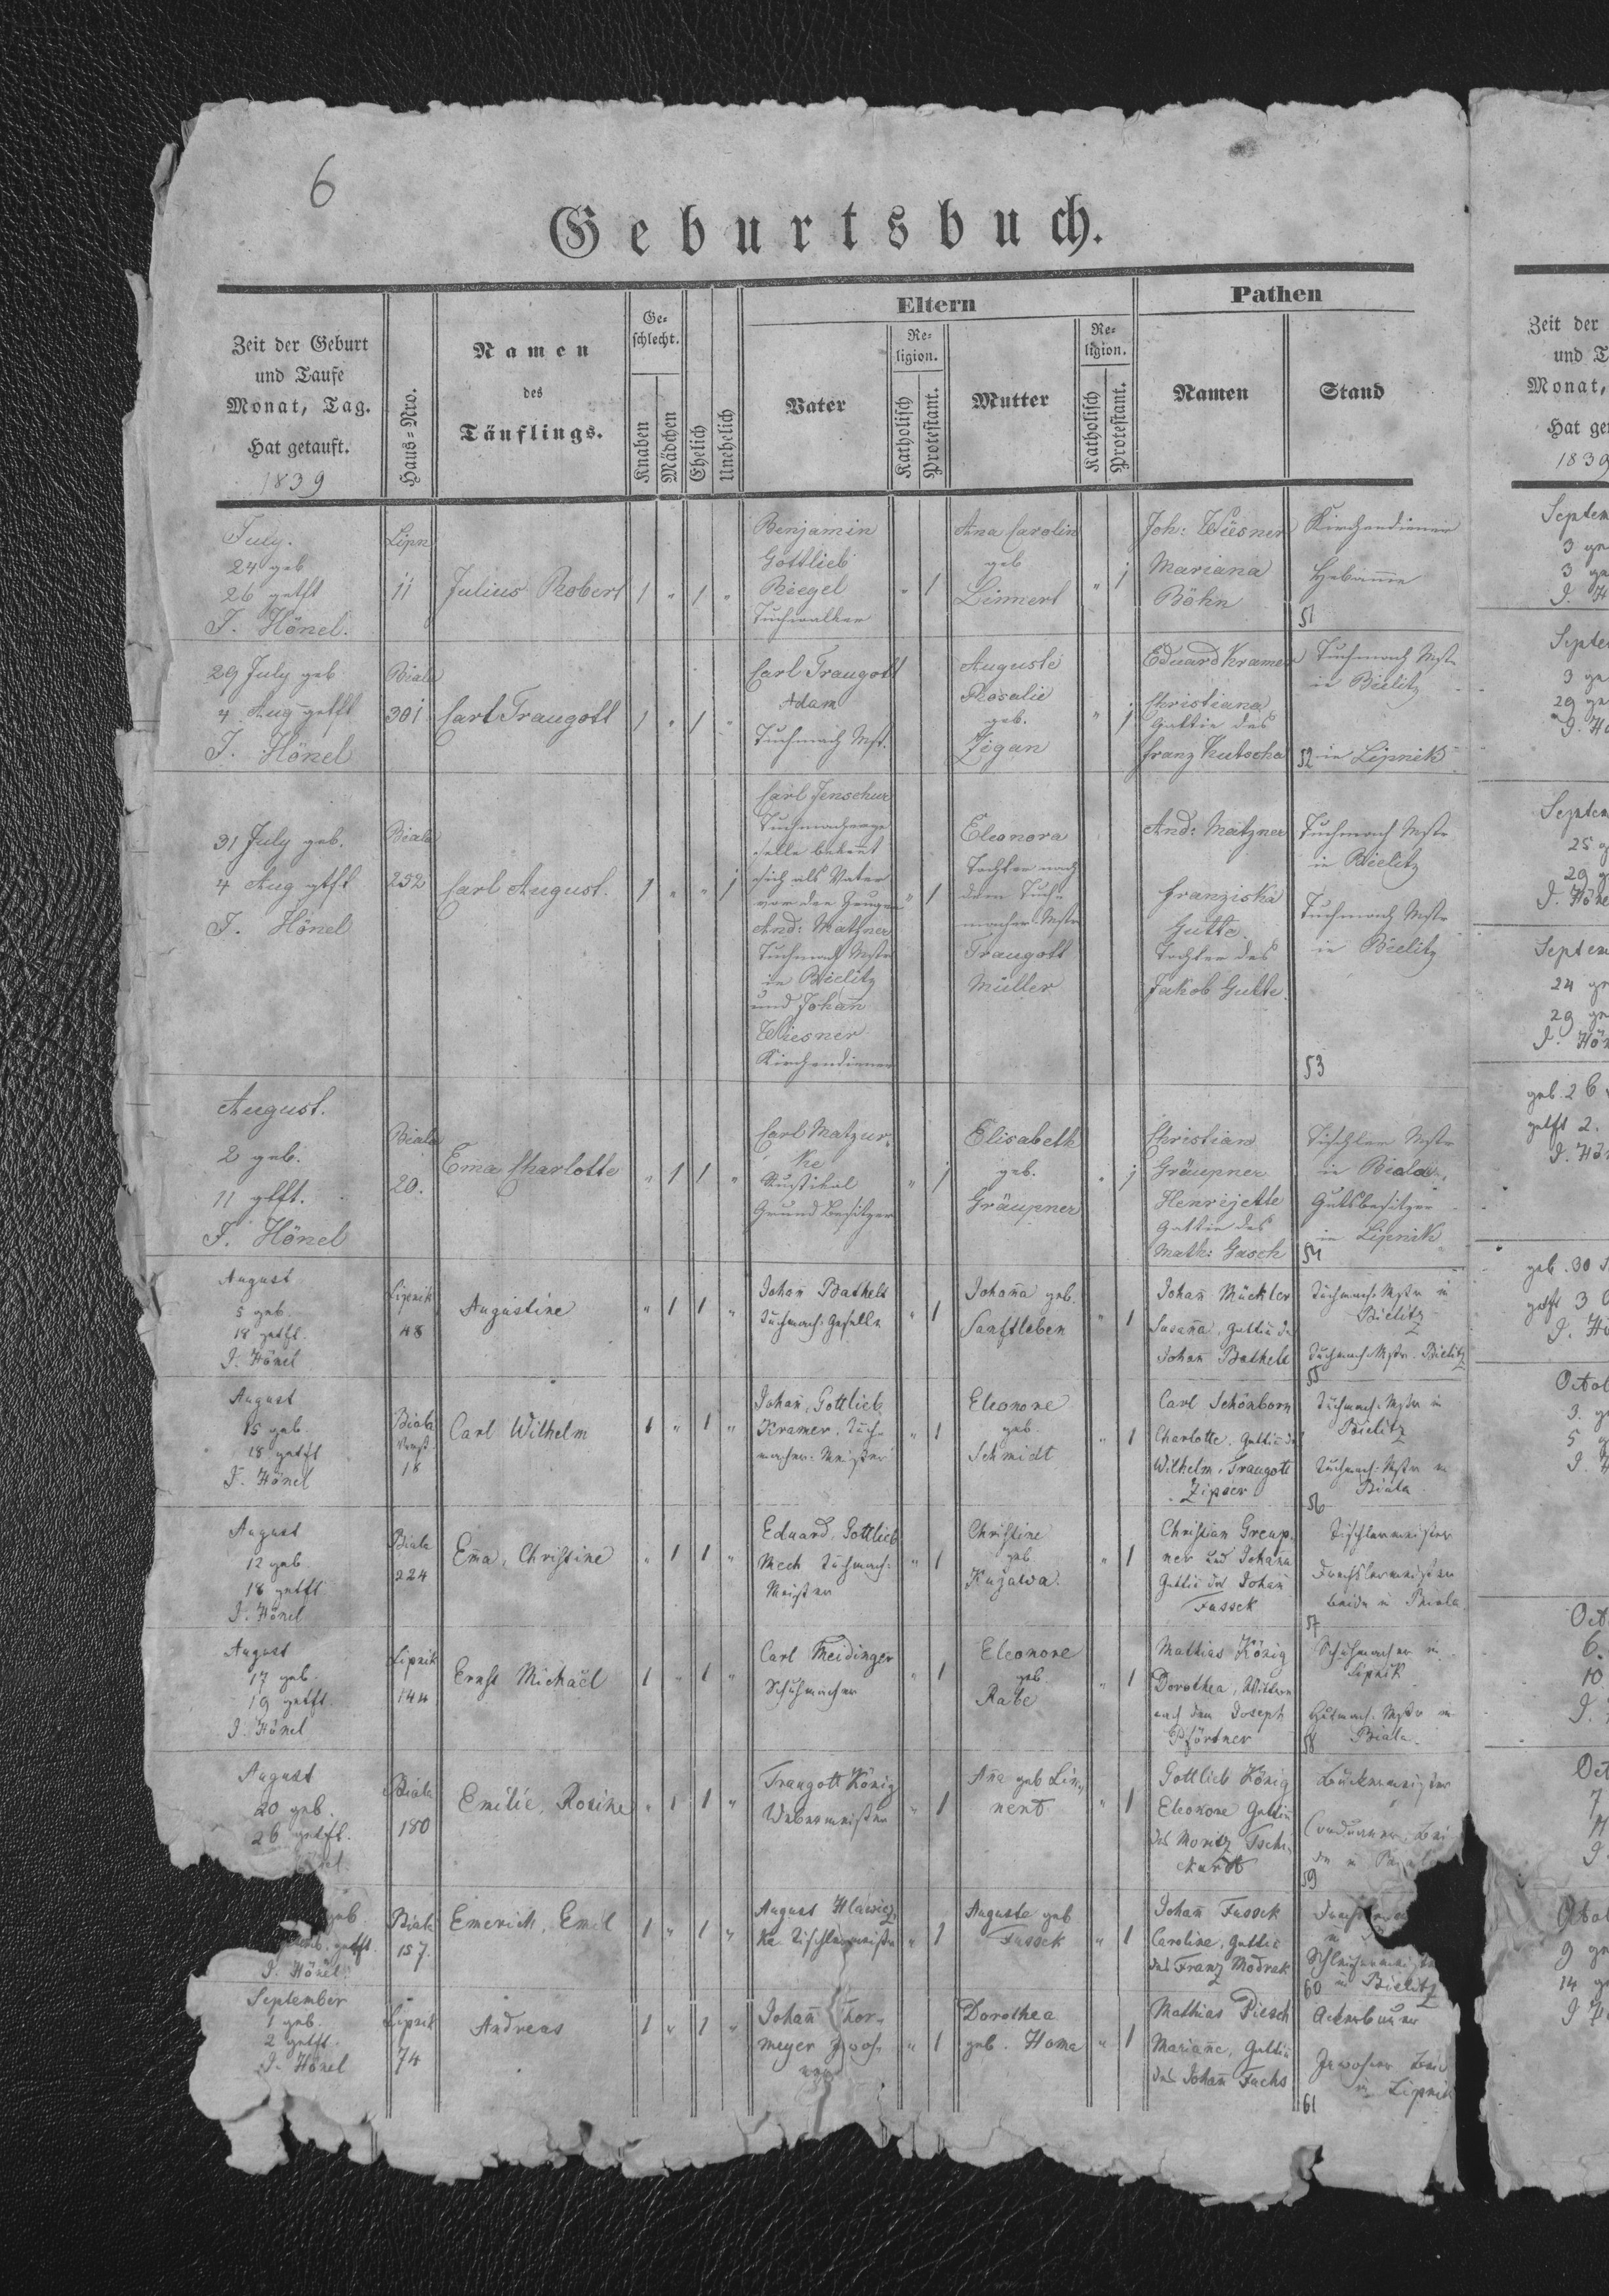 6
Geburtsbuch.
Zeit der Geburt
und Taufe
Monat, Tag.
Hat getauft.
1839
Haus=Nro.
Namen
des
Täuflings.
Ge=
schlecht.
Knaben
Mädchen
Ehelich
Unehelich
Eltern
Vater
Re=
ligion.
Katholisch
Protestant.
Mutter
Re=
ligion.
Katholisch
Protestant.
Pathen
Namen
Stand
July.
24 geb
26 getft
J. Hönel.
Lipn
11
Julius Robert
1 " 1 "
Benjamin
Gottlieb
Riegel
Tuchwalker
" 1
Ana Carolin
geb
Linnert
" 1
Joh: Wiesner
Mariana
Böhn
Kirchendiener
Hebam̅e
51
29 July geb
4 Aug getft
J. Hönel
Biala
301
Carl Traugott
1 " 1 "
Carl Traugott
Adam
Tuchmach Mst.
Auguste
Rosalie
geb.
Zigan
" 1
Eduard Kramer
Christiana
Gattin des
Franz Kutscha
Tuchmach Mstr
in Bielitz
52 in Lipnik
31 July geb.
4 Aug gtft
J. Hönel
Biala
252
Carl August.
1 " " 1
Carl Jenschur
Tuchmacherge
selle bekent
sich als Vater
vor den Zeugen
And: Matzner
Tuchmach Mstr
in Bielitz
und Johan̅
Wiesner
Kirchendiener
" 1
Eleonora
Tochter nach
dem Tuch=
macher Mstr
Traugott
Müller
And: Matzner
Franziska
Gutte
Tochter des
Jakob Gutte.
Tuchmach Mstr
in Bielitz
Tuchmach Mstr
in Bielitz
53
August.
2 geb.
11 gtft.
J. Hönel
Biala
20.
Em̅a Charlotte
" 1 1 "
Carl Matzur=
ke
Rustikal
Grund Besitzer
" 1
Elisabeth
geb.
Gräupner
" 1
Christian
Gräupner
Henrijette
Gattin des
Math: Gasch
Tischler Mstr
in Biala
Gutsbesitzer
in Lipnik
54
August
5 geb.
18 getft.
J. Hönel
Lipnik
48
Augustine
" 1 1 "
Johan̅ Bathelt
Tuchmach: Geselle
" 1
Johan̅a geb.
Sanftleben
" 1
Johan̅ Mückler
Susan̅a, Gattin d
Johan̅ Bathelt
Tuchmach Mstr in
Bielitz
Tuchmach Mstr. Bielitz
55
August
15 geb.
18 getft
J. Hönel
Biala
18
Carl Wilhelm
1 " 1 "
Johan̅, Gottlieb
Kramer, Tuch=
macher Meister
" 1
Eleonore
geb.
Schmidt
" 1
Carl Schönborn
Charlotte, Gattin d
Wilhelm, Traugott
Zipser
Tuchmach: Mstr in
Bielitz
Tuchmach: Mstr in
Biala
56
August
12 geb.
18 getft
J. Hönel
Biala
224
Em̅a, Christine
" 1 1 "
Eduard, Gottlieb
Mech Tuchmach:
Meister
" 1
Christine
geb
Kujawa.
" 1
Christian Greup=
ner und Johan̅a
Gattin des Johan̅
Fussek
Tischlermeister
Drechslermeister
beide in Biala
57
August
17 geb.
19 getft.
J. Hönel
Lipnik
144
Ernst Michaël
1 " 1 "
Carl Meidinger
Schuhmacher
" 1
Eleonore
geb
Rabe
" 1
Mathias König
Dorothea, Wittwe
nach dem Joseph
Pförtner
Schuhmacher in
Lipnik
Hutmach. Mstr in
Biala.
58
August
20 geb.
26 getft.
Biala
180
Emilie, Rosine
" 1 1 "
Traugott König
Webermeister
" 1
An̅a geb Lin=
nert
" 1
Gottlieb König
Eleonore Gattin
des Moritz Tschi=
ckardt
Bäckermeister
59
geb.
getft.
J. Hönel.
Biala
157.
Emerich, Emil
1 " 1 "
August Hlawicz=
ka Tischlermeister
" 1
Auguste geb
Fussek
" 1
Johan̅ Fussek
Caroline, Gattin
des Franz Modrak
60 in Bielitz
September
1 geb.
2 getft.
J. Hönel
Lipnik
74
Andreas
1 " 1 "
Johan̅ Thor=
meyer Inwoh=
ner
" 1
Dorothea
geb. Homa
" 1
Mathias Piesch
Marian̅e, Gattin
des Johan̅ Fuchs
Ackerbauer
Inwohner beide
in Lipnik
61
Zeit der
und T
Monat,
Hat ge
1839
Septem
3 ge
Septem
3 ge
29 ge
Septem
25 g
29 g
J. Höne
Septem
24 ge
29 ge
J. Hön
geb. 26
getft 2.
J. Hön
geb. 30
getft 3
J. Hö
Octob
3. g
5 g
Oct
6.
10
Oct
7
Octob
9 ge
14 g